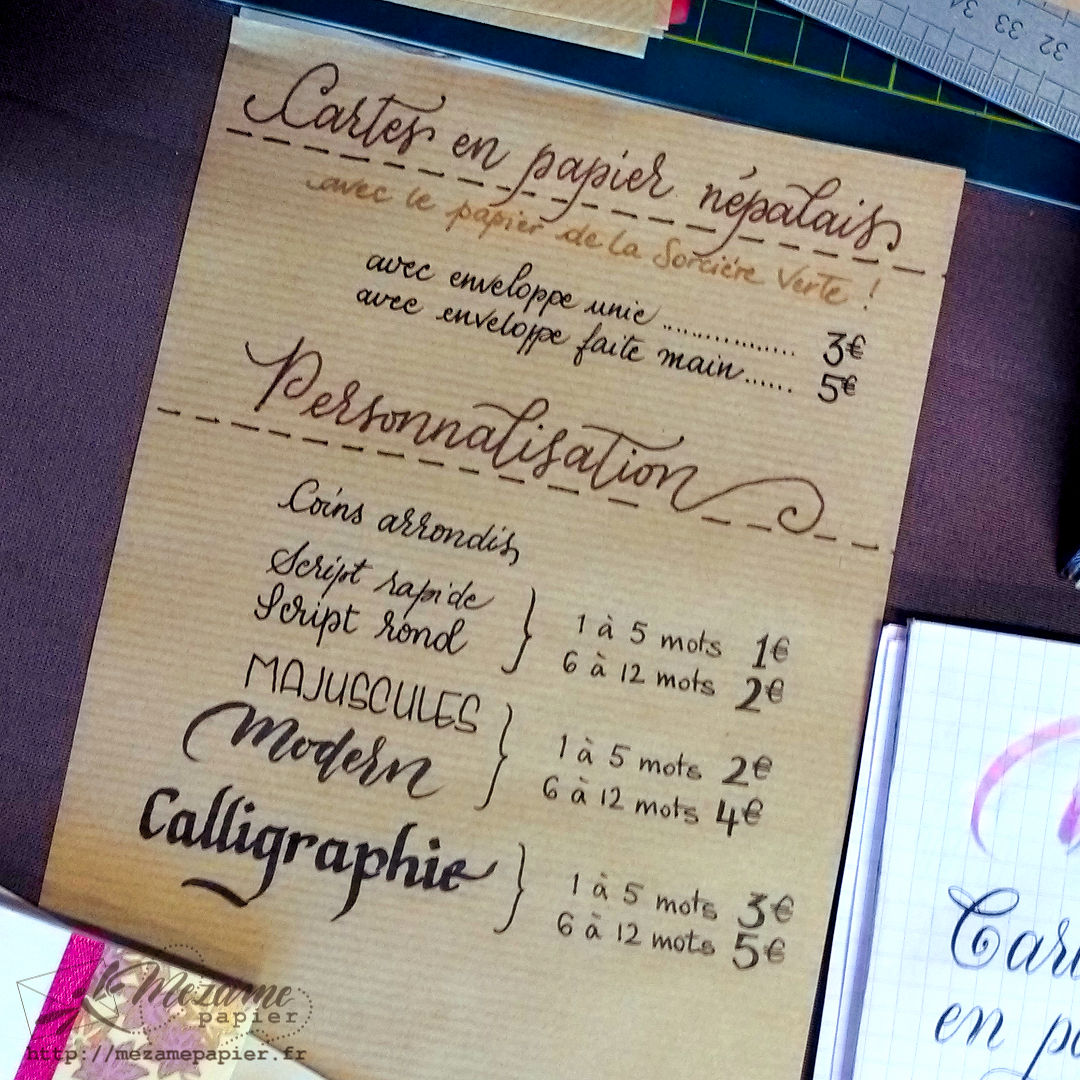 34 33 32
Cartes en papier népalais
avec le papier de la Sorcière Verte !
avec enveloppe unie .................. 3€
avec enveloppe faite main ...... 5€
Personnalisation
Coins arrondis
Script rapide
Script rond
1 à 5 mots 1€
6 à 12 mots 2€
MAJUSCULES
Modern
1 à 5 mots 2€
6 à 12 mots 4€
Calligraphie
1 à 5 mots 3€
6 à 12 mots 5€
en
Mezame
papier
http://mezamepapier.fr